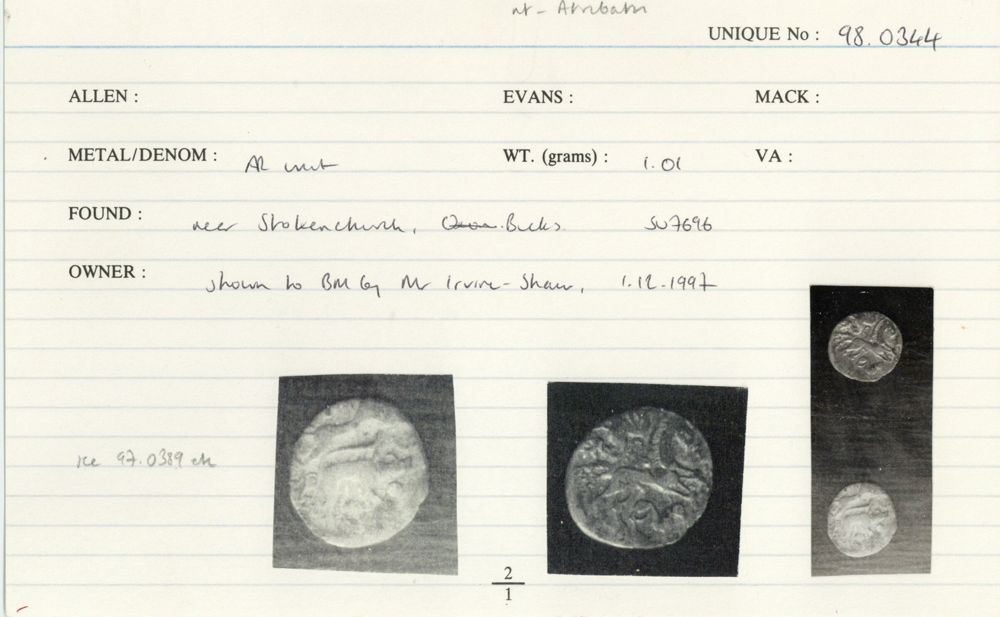 nt - Atrebatic
UNIQUE No : 98.0344
ALLEN : EVANS : MACK :
METAL/DENOM : AR unit WT. (grams) : 1.01 VA :
FOUND : near Stokenchurch, Bucks. SU7696
OWNER : shown to BM by Mr Irvine-Shaw, 1.12.1997
see 97.0389 etc
2
1